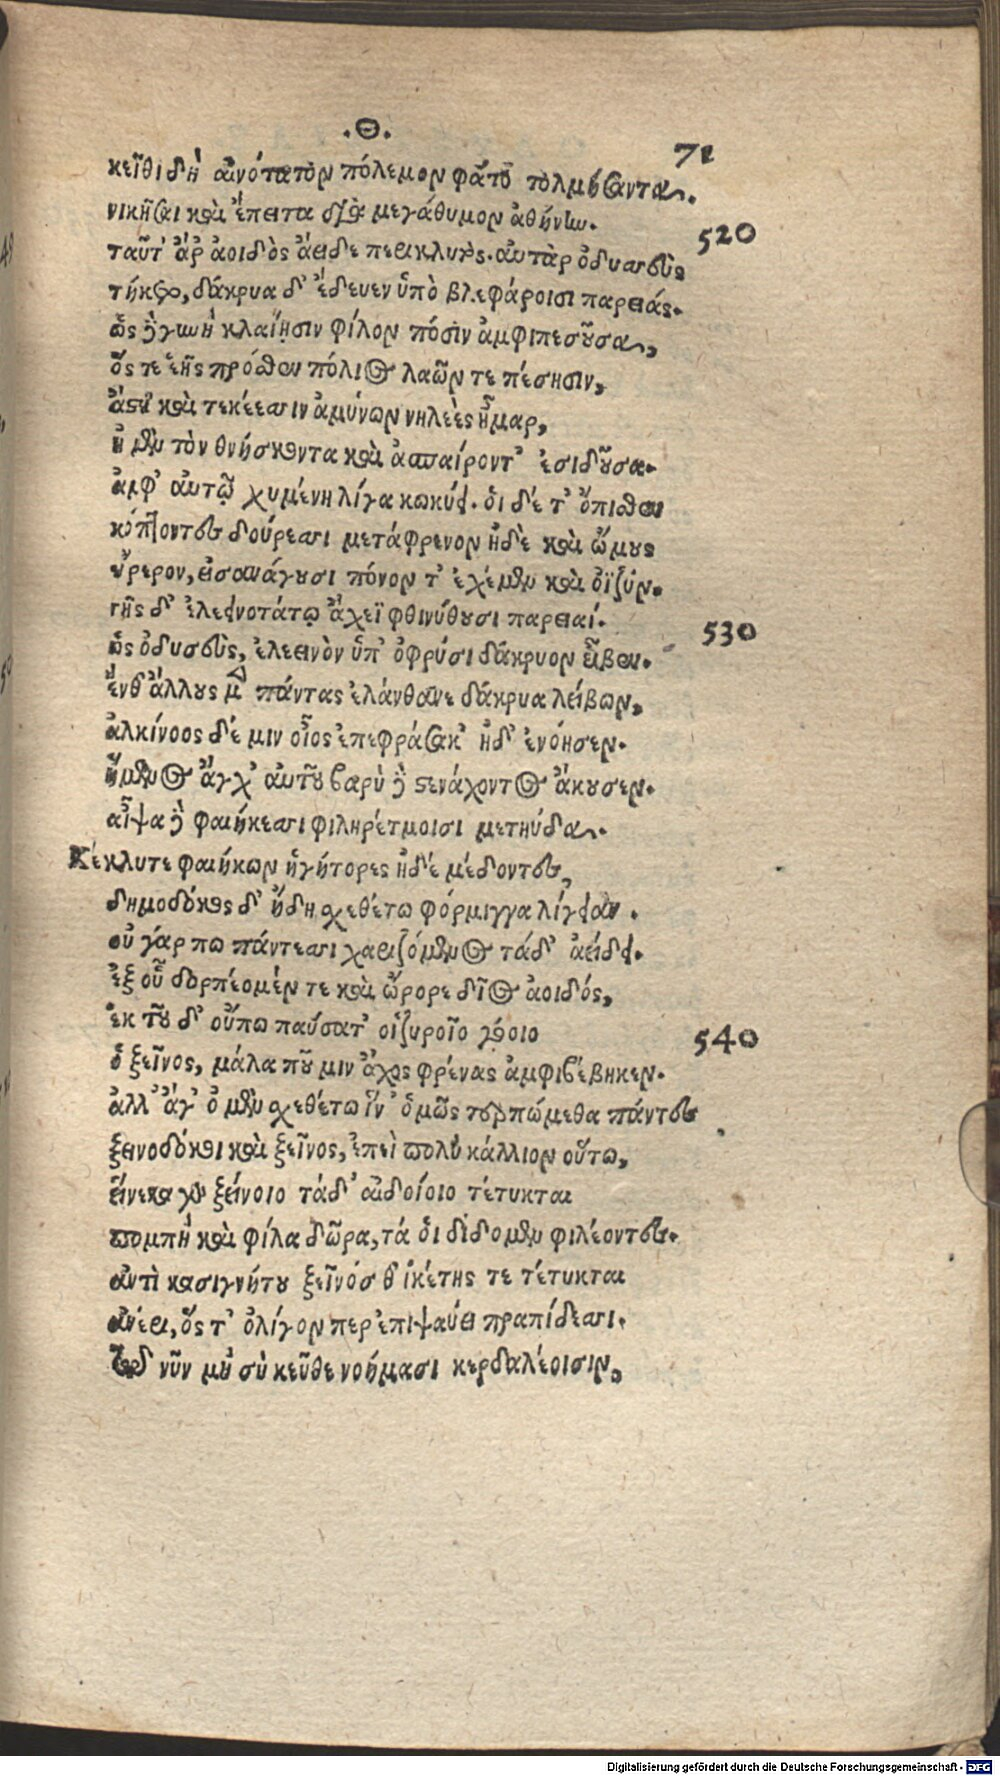 .Θ.
71
κεῖθι δὴ αἰνότατον πόλεμον φάτο τολμήσαντα.
νικῆσαι καὶ ἔπειτα διὰ μεγάθυμον ἀθήνην.
520
ταῦτ' ἄρ ἀοιδὸς ἄειδε περικλυτός. αὐτὰρ ὀδυσσεὺς
τήκετο, δάκρυα δ' ἔδευεν ὑπὸ βλεφάροισι παρειάς.
ὡς δὲ γυνὴ κλαίῃσιν φίλον πόσιν ἀμφιπεσοῦσα,
ὅς τε ἑῆς πρόσθεν πόλιος λαῶν τε πέσησιν,
ἄστυ καὶ τεκέεσσιν ἀμύνων νηλεὲς ἦμαρ,
ἡ μὲν τὸν θνήσκοντα καὶ ἀσπαίροντ' ἐσιδοῦσα.
ἀμφ' αὐτῷ χυμένη λίγα κωκύει. ὁι δέ τ' ὄπισθεν
κόπτοντες δούρεσσι μετάφρενον ἠδὲ καὶ ὤμους
εἴρερον, εἰσανάγουσι πόνον τ' ἐχέμεν καὶ ὀϊζύν.
τῆς δ' ἐλεεινοτάτῳ ἄχεϊ φθινύθουσι παρειαί.
530
ὡς ὀδυσεὺς, ἐλεεινὸν ὑπ' ὀφρύσι δάκρυον εἶβεν.
ἔνθ' ἄλλους μὲν πάντας ἐλάνθανε δάκρυα λείβων,
ἀλκίνοος δέ μιν οἶος ἐπεφράσατ' ἠδ' ἐνόησεν.
ἥμενος ἄγχ' αὐτοῦ βαρὺ δὲ στενάχοντος ἄκουσεν.
αἶψα δὲ φαιήκεσσι φιληρέτμοισι μετηύδα.
Κέκλυτε φαιήκων ἡγήτορες ἠδέ μέδοντες,
δημοδόκος δ' ἤδη σχεθέτω φόρμιγγα λίγειαν.
οὐ γάρ πω πάντεσσι χαριζόμενος τάδ' ἀείδει.
ἐξ οὗ δορπέομέν τε καὶ ὤρορε δῖος ἀοιδός,
ἐκ τοῦ δ' οὔπω παύσατ' οἰζυροῖο γόοιο
540
ὁ ξεῖνος, μάλα που μιν ἄχος φρένας ἀμφιβέβηκεν.
ἀλλ' ἄγ' ὁ μὲν σχεθέτω ἵν' ὁμῶς τερπώμεθα πάντες
ξεινοδόκοι καὶ ξεῖνος, ἐπεὶ πολὺ κάλλιον οὕτω,
εἵνεκα γὰρ ξείνοιο τάδ' αἰδοίοιο τέτυκται
πομπὴ καὶ φίλα δῶρα, τά ὁι δίδομεν φιλέοντες.
ἀντὶ κασιγνήτου ξεῖνός θ' ἱκέτης τε τέτυκται
ἀνέρι, ὅς τ' ὀλίγον περ' ἐπιψαύει πραπίδεσσι.
Τῷ νῦν μὴ σὺ κεῦθε νοήμασι κερδαλέοισιν,
Digitalisierung gefördert durch die Deutsche Forschungsgemeinschaft - DFG